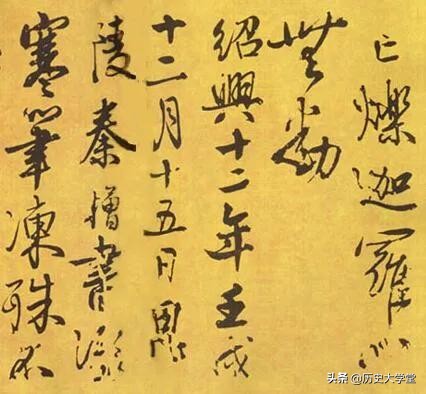 亡爍迦羅心
無動
紹興十二年壬戌
十二月十五日
陵秦檜書
寒筆凍殊不
头条 @历史大学堂